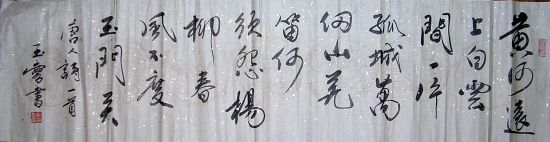 黄河遠
上白雲
間一片
孤城萬
仞山羌
笛何
須怨楊
柳春
風不度
玉門关
唐人詩一首
玉雪書